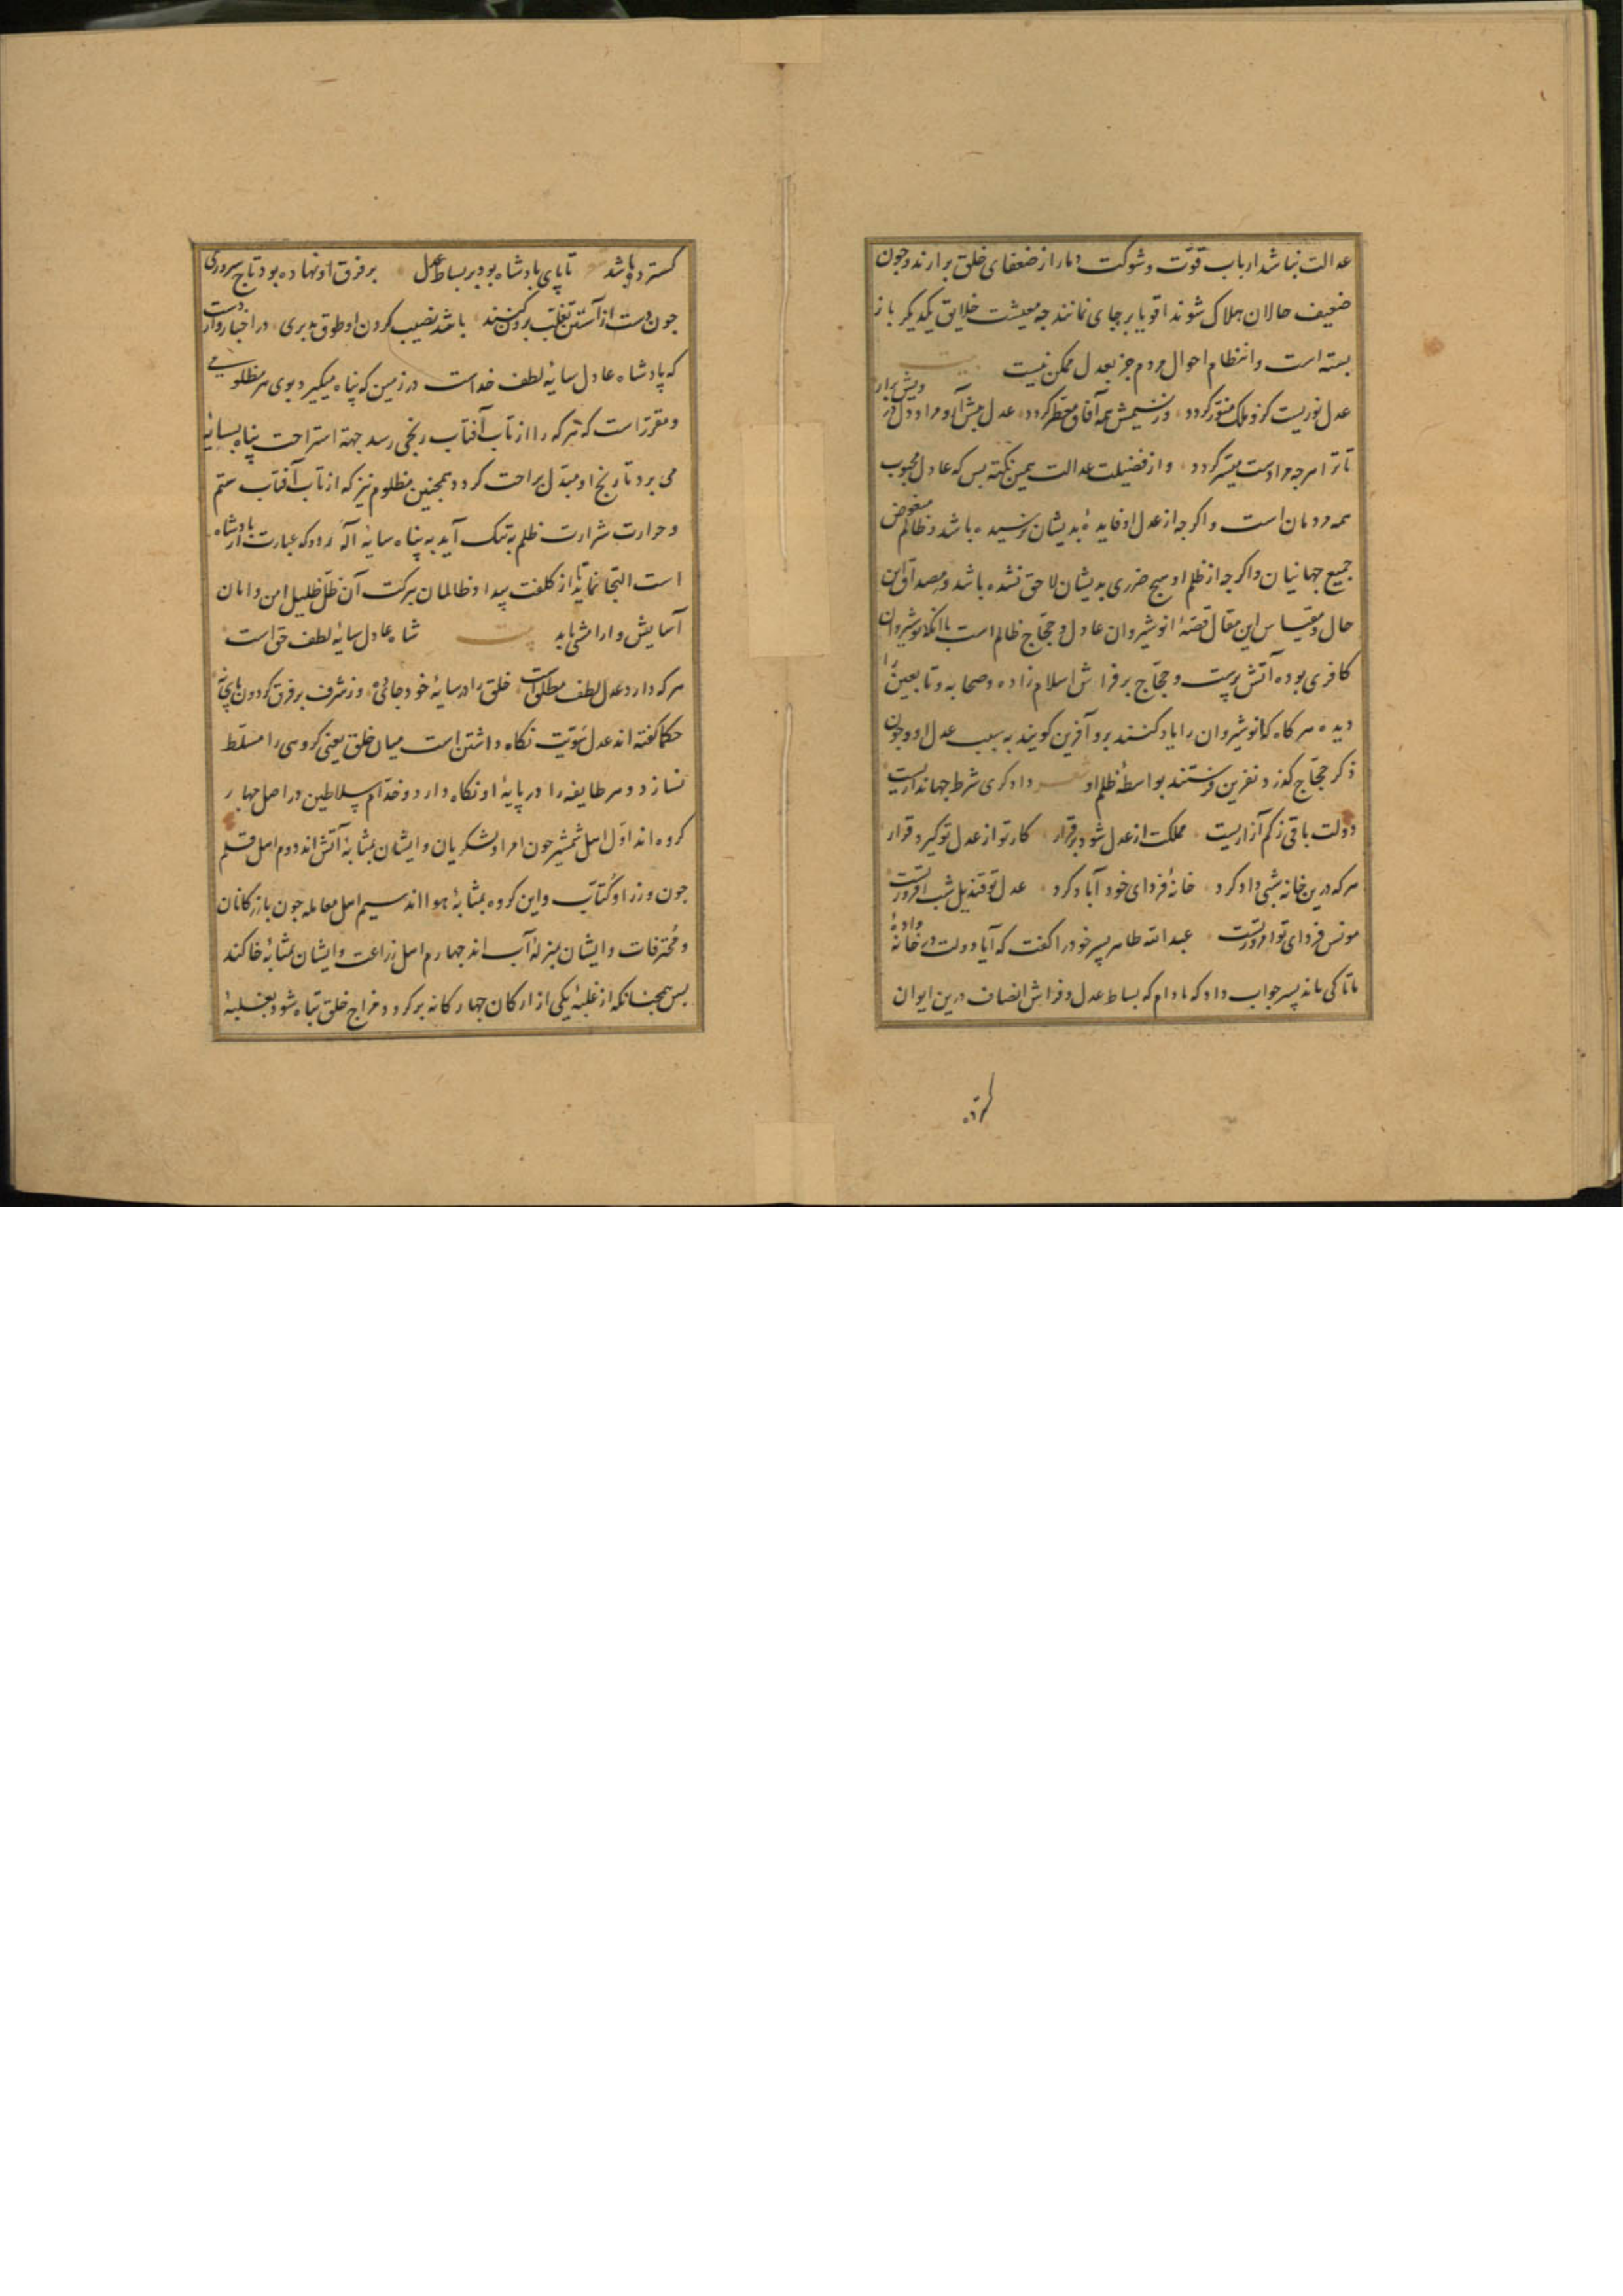 عدالت نباشد ارباب قوّت و شوکت دمار از ضعفای خلق برارند و جون
ضعیف حالان هلاک شوند اقویا بر جای نمانند جه معیشت خلایق یکدیکر باز
بسته است و انتظام احوال مردم جز بعدل ممکن نیست بیت
عدل نوریست کزو ملک منوّر کردد وز نسیمش همه آفاق معطّر کردد عدل پیش آر و مراد دل درویش برار
تا ترا هرجه مرادست میسّر کردد و از فضیلت عدالت همین نکته بس که عادل محبوب
همه مردمان است و اکرجه از عدل او فایدهٔ بدیشان نرسیده باشد و ظالم مبغوض
جمیع جهانیان و اکرجه از ظلم او هیج ضرری بدیشان لاحق نشده باشد و مصداق این
حال و مقیاس این مقال قصّهٔ انوشیروان عادل و حجّاج ظالم است با انکه انوشیروان
کافری بوده آتش پرست و حجّاج بر فراش اسلام زاده و صحابه و تابعین را
دیده هرکاه که انوشیروان را یاد کنند برو آفرین کویند به سبب عدل او و جون
ذکر حجّاج کذرد نفرین فرستند بواسطهٔ ظلم او شعر دادکری شرط جهانداریست
دولت باقی ز کم آزاریست مملکت از عدل شود برقرار کار تو از عدل تو کیرد قرار
هرکه درین خانه شبی داد کرد خانهٔ فردای خود آباد کرد عدل تو قندیل شب افروز تست
مونس فردای تو امروز تست عبدالله طاهر پسر خود را کفت که آیا دولت در خانهٔ
ما تا کی ماند پسر جواب داد که مادام که بساط عدل و فراش انصاف درین ایوان
کسترده
کسترده باشد تا پای بادشاه بود بر بساط عدل بر فرق او نهاده بود تاج سروری
جون دست از آستین تغلّب برون کند باشد نصیب کردن او طوق مدبری در اخبار وارد است
که پادشاه عادل سایهٔ لطف خداست در زمین که پناه میکیرد بوی هر مظلومی
و مقرّر است که هرکه را از تاب آفتاب رنجی رسد جهة استراحت پناه بسایه
می برد تا رنج او مبدّل براحت کردد همجنین مظلوم نیز که از تاب آفتاب ستم
و حرارت شرارت ظلم به تنک آید به پناه سایهٔ آله رود که عبارت از بادشاه
است التجا نماید تا از کلفت بیداد ظالمان ببرکت آن ظلّ ظلیل امن و امان
آسایش و ارامش یابد بیت شاه عادل سایهٔ لطف حق است
هرکه دارد عدل لطف مطلق است خلق را در سایهٔ خود جای ده وز شرف بر فرق کردون پای نه
حکما کفته اند عدل سَویّت نکاه داشتن است میان خلق یعنی کروهی را مسلّط
نسازد و هر طایفه را در پایهٔ او نکاه دارد و خدّام سلاطین در اصل جهار
کروه اند اوّل اهل شمشیر جون امرا و لشکریان و ایشان بمثابهٔ آتش اند دوم اهل قلم
جون وزرا و کُتّاب و این کروه بمثابهٔ هوا اند سیم اهل معامله جون بازرکانان
و مُحترفات و ایشان بمنزلهٔ آب اند جهارم اهل زراعت و ایشان بمثابهٔ خاکند
بس همجنانکه از غلبهٔ یکی از ارکان جهارکانه بر کردد مزاج خلق تباه شود بغلبهٔ